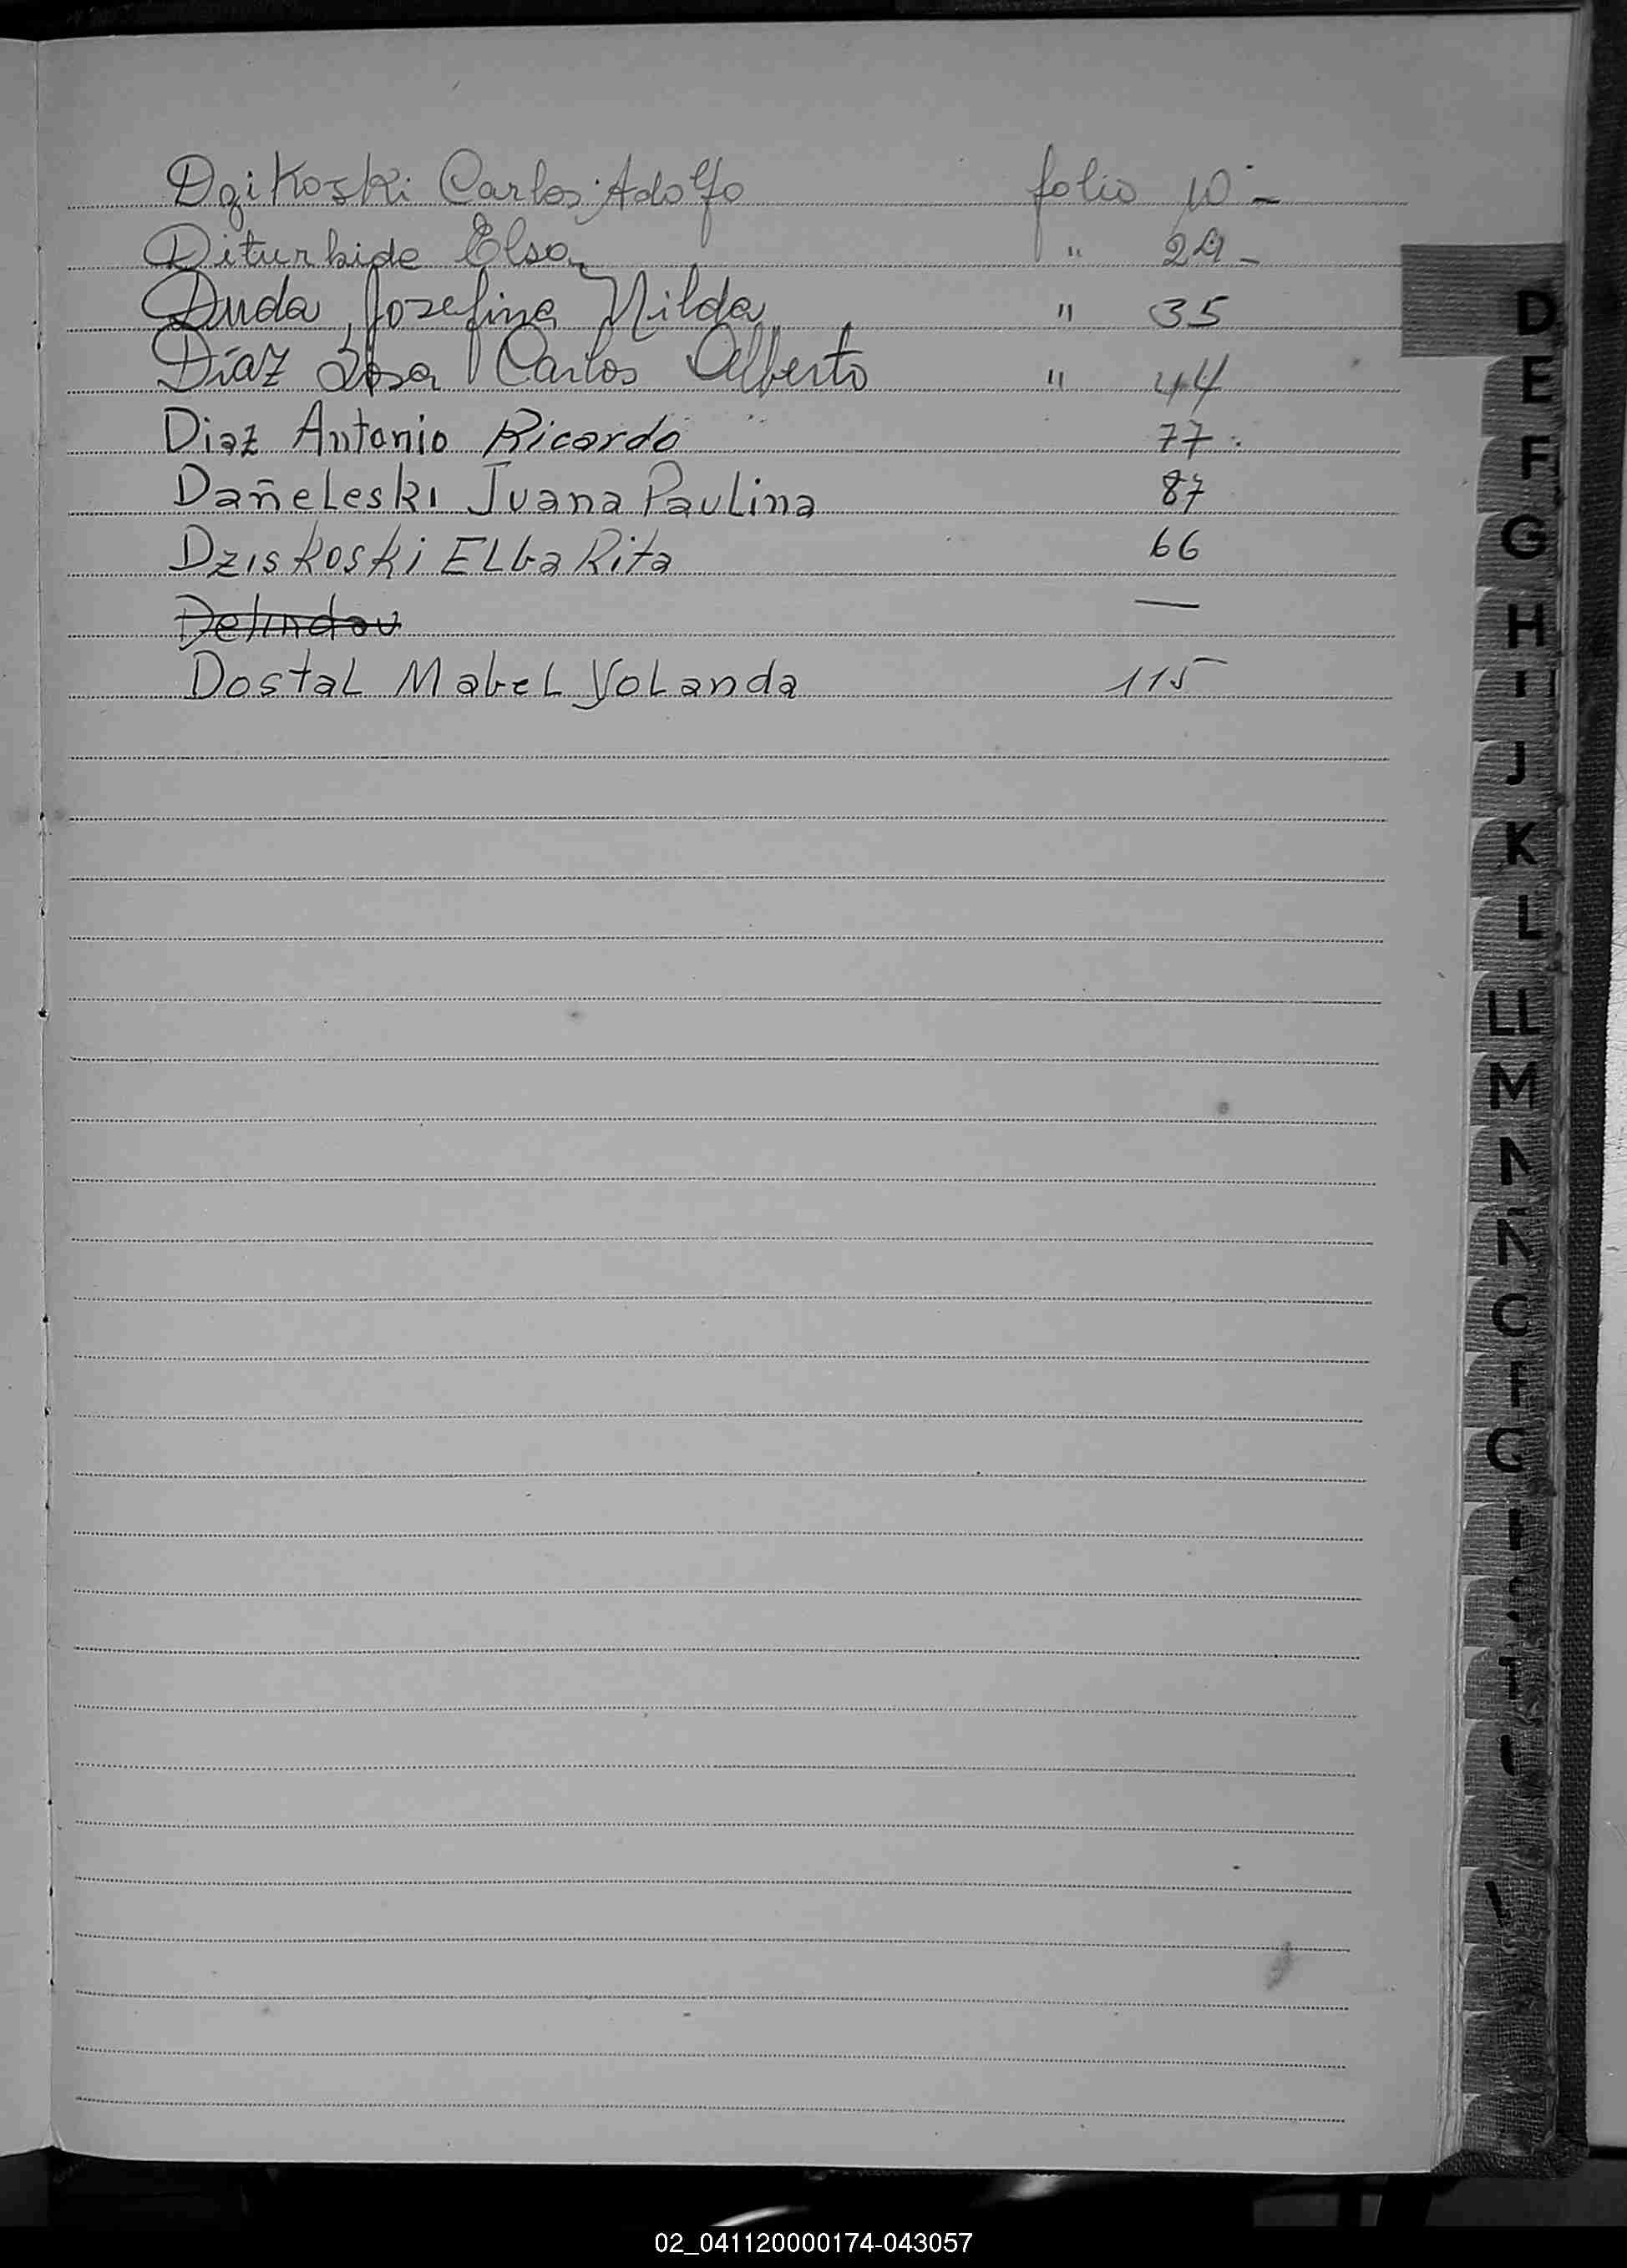 Dzikoski Carlos Adolfo folio 10 -
Diturbide Elsa " 24 -
Duda, Josefina Nilda " 35
Díaz Sosa Carlos Alberto " 44
Diaz Antonio Ricardo 77
Dañeleski Juana Paulina 87
Dziskoski Elba Rita 66
Delindau —
Dostal Mabel Yolanda 115
D
E
F
G
H
I
J
K
L
LL
M
N
Ñ
02_041120000174-043057